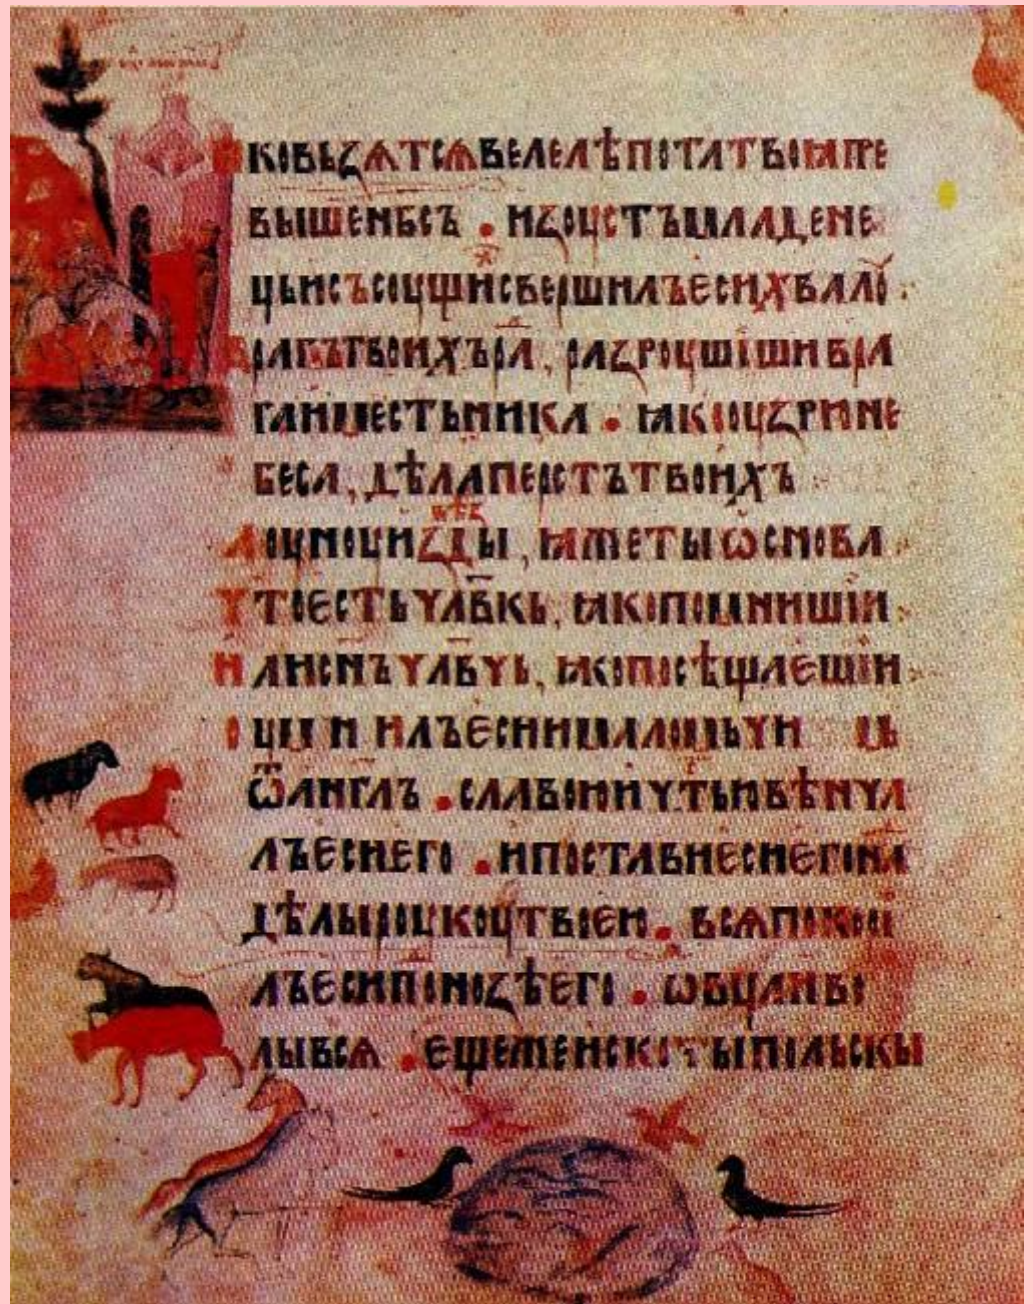 ѧковьꙁѧтсѧвелелѣпотатвоꙗпре
вышенбсъ • иꙁоустъмладене
цьисъсоущисвершилъесихвало
врагътвоихърⷣа, раꙁроушішивра
гаиместьника • ꙗкооуꙁрюне
беса, дѣлаперстътвоихъ
лоуноуиꙁвѣꙁды, ꙗжетыѡснова
Үтоестьүлвкъ, ꙗкопомнишіи
илиснъүлвүь, ꙗкопосѣщаешіи
оумнилъесиималомьүи мь
ѿанглъ • славоюиүтьювѣнүа
лъесиего • ипоставиесиегона
дѣлыроукоутвоею • всѧпокори
лъесиподноꙁѣего • ѡвцаиво
лывсѧ • ещежеискотыпольскы